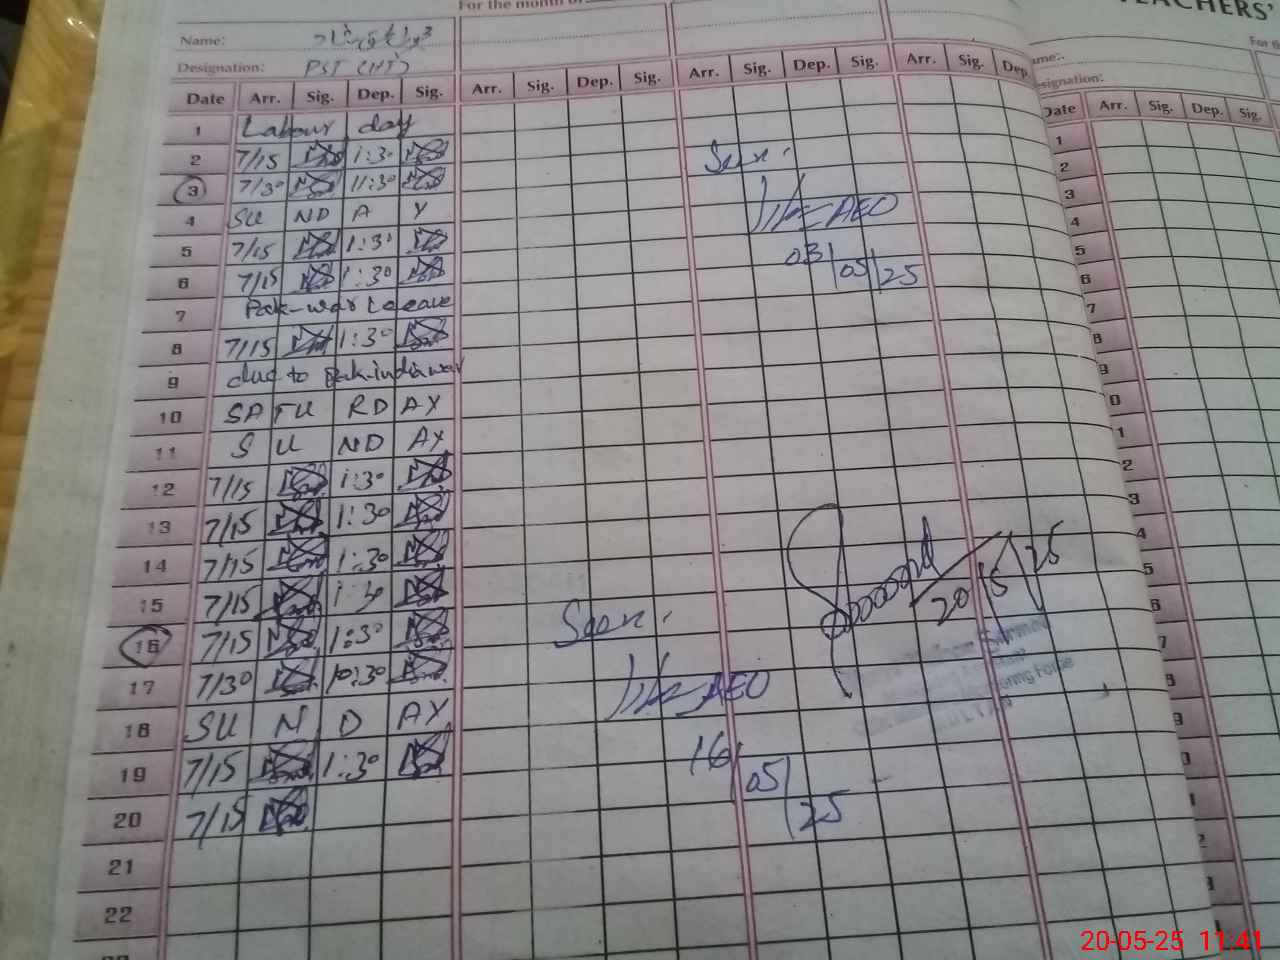 For the month of
TEACHERS'
Name:
Designation: PST (HT)
Date Arr. Sig. Dep. Sig. Arr. Sig. Dep. Sig. Arr. Sig. Dep. Sig. Arr. Sig. Dep.
1 Labour day
2 7/15 1:30
3 7/30 11:30
4 SU ND A Y
5 7/15 1:30
6 7/15 1:30
7 Pak-war Leave
8 7/15 1:30
9 due to Pak-india war
10 SA TU RD AY
11 S U ND AY
12 7/15 1:30
13 7/15 1:30
14 7/15 1:30
15 7/15 1:30
16 7/15 1:30
17 7/30 10:30
18 SU N D AY
19 7/15 1:30
20 7/15
21
22
Seen.
AEO
03/05/25
Seen.
AEO
16/05/25
20/5/25
For th
ame:
esignation:
Date Arr. Sig. Dep. Sig.
1
2
3
4
5
6
7
8
9
0
1
2
3
4
5
6
7
8
9
0
1
2
3
20-05-25 11:41